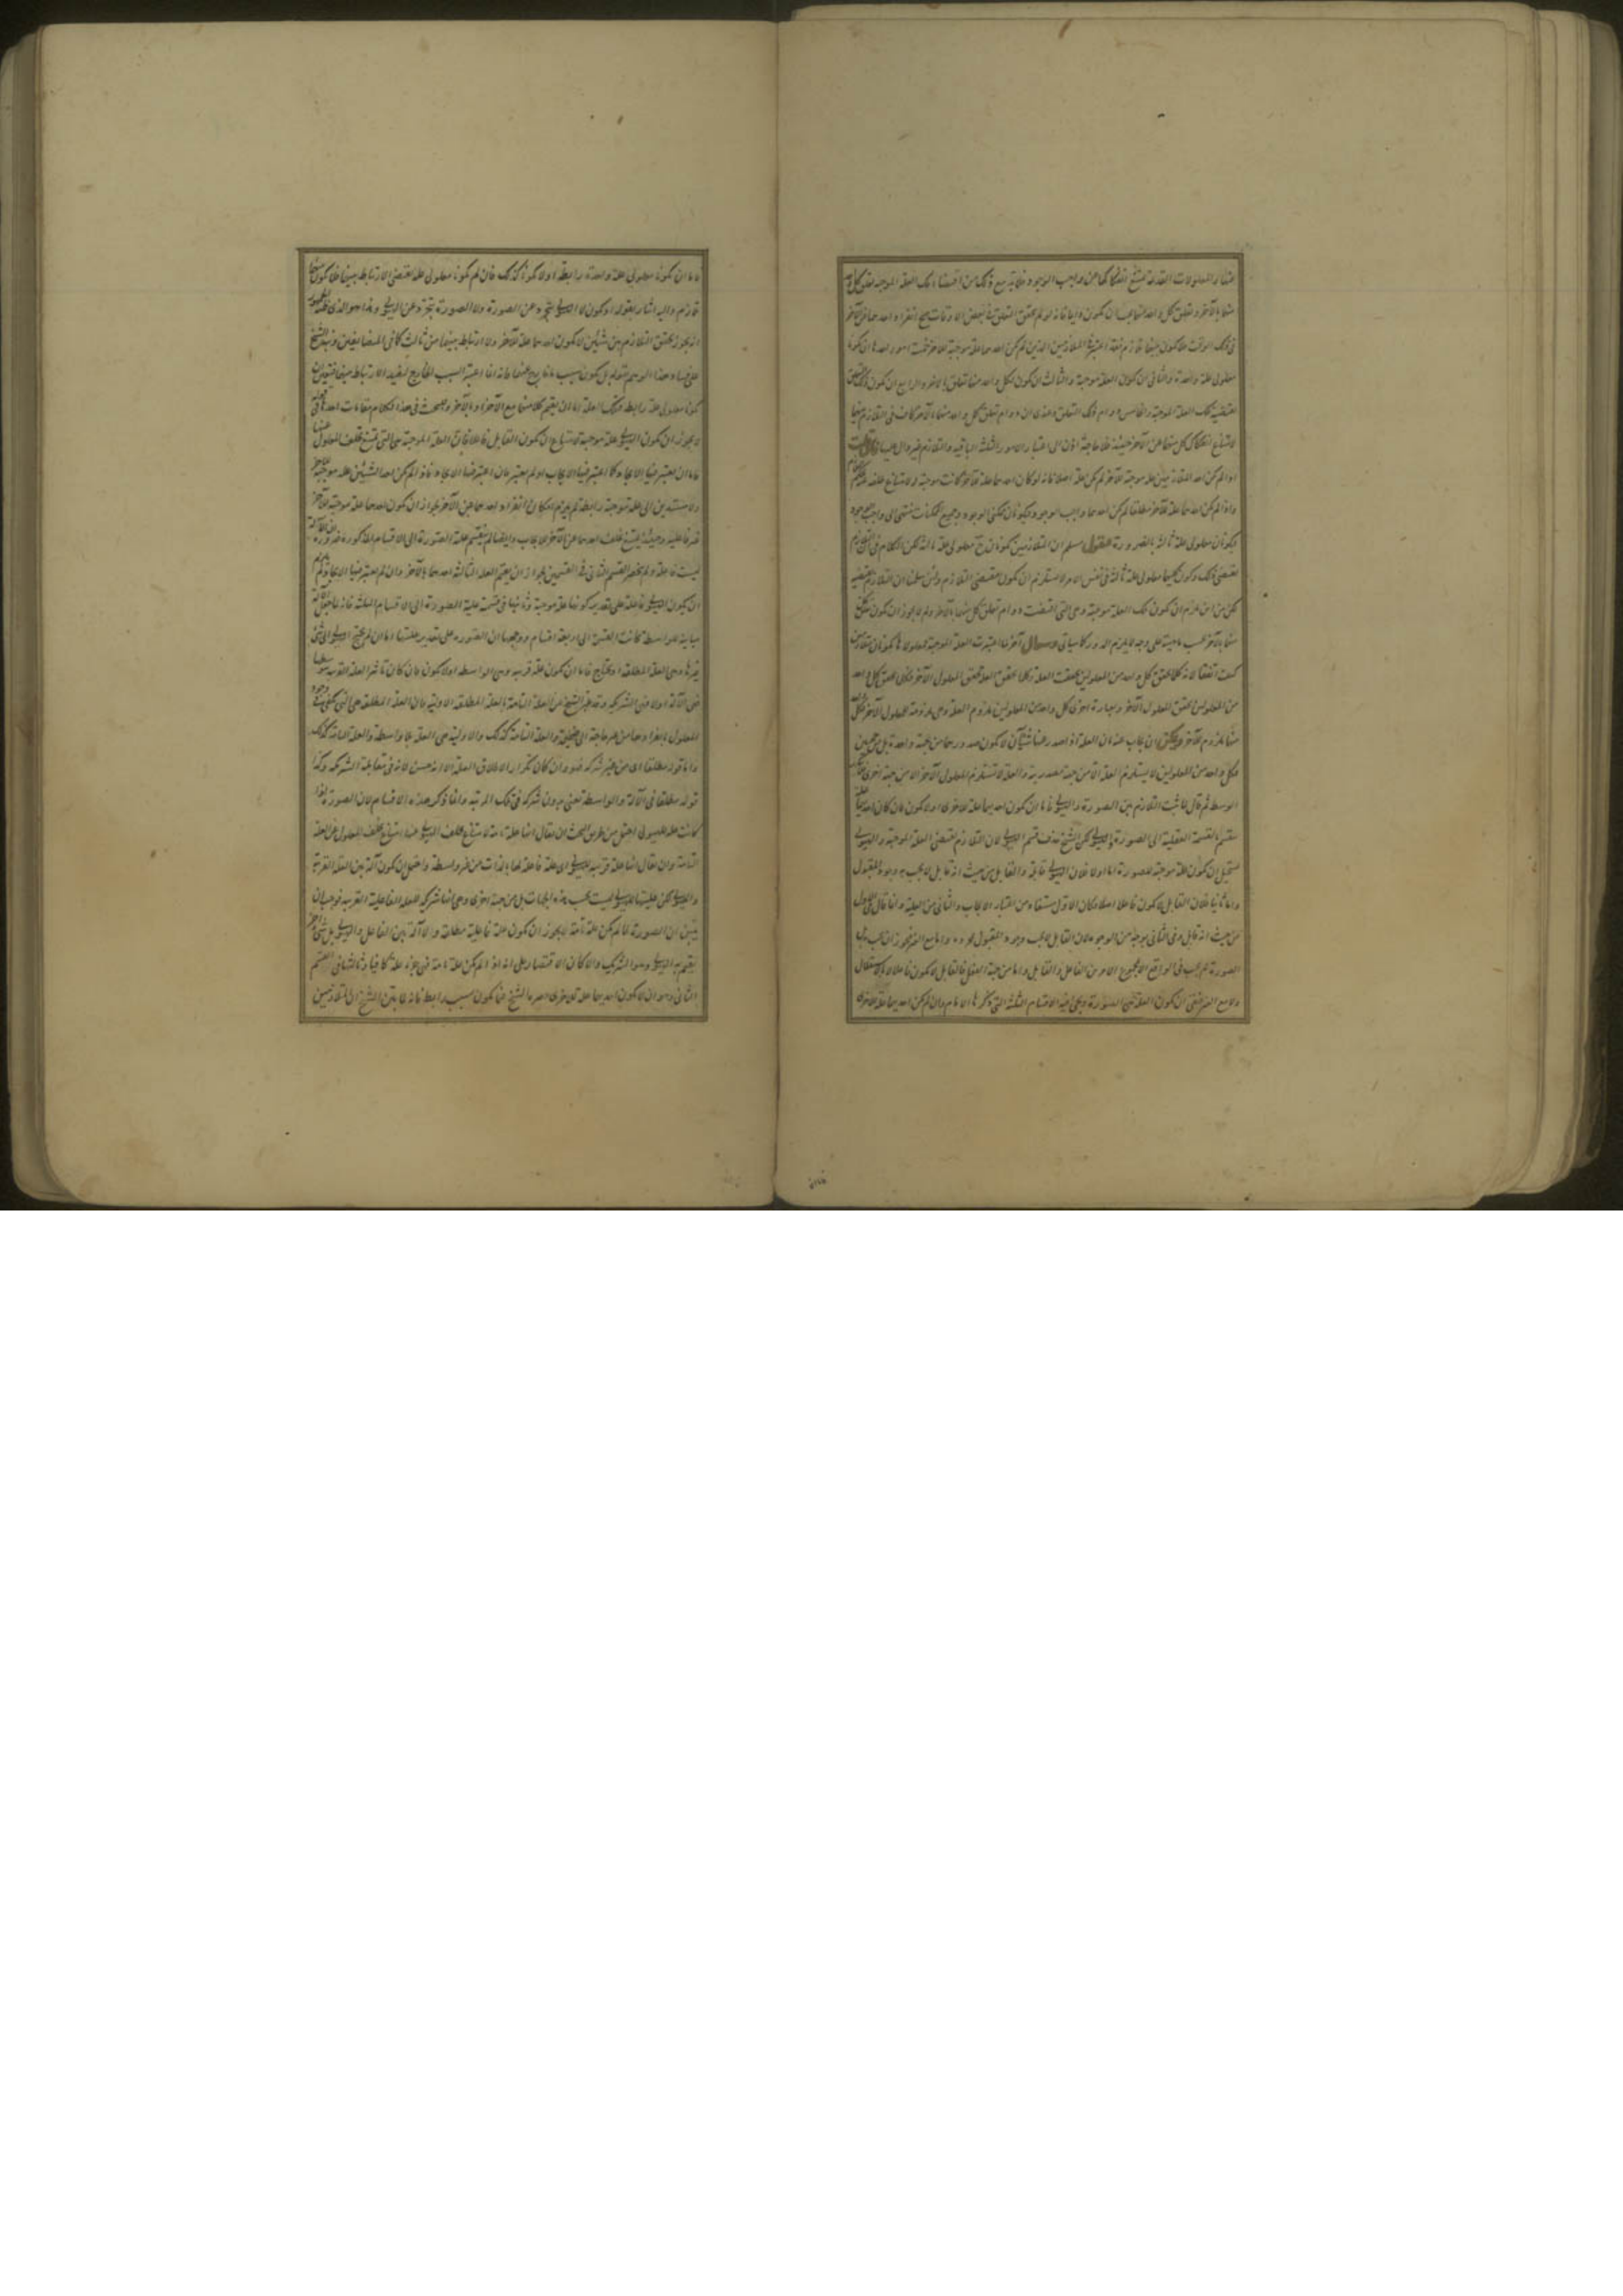 بينهما والمعلولات القديمة يمتنع انفكاكها عن واجب الوجود فلا بد مع ذلك من اقتضاء تلك العلة الموجبة تعلق كل
منهما بالآخر وتعلق كل واحد منهما يجب ان يكون دايما فانه لو لم يتحقق التعلق في بعض الاوقات صح انفراد احدهما عن الآخر
في ذلك الوقت فلا يكون بينهما تلازم فقد اعتبر في المتلازمين الذين لم يكن احدهما علة موجبة للآخر خمسة امور احدها ان يكونا
معلولي علة واحدة والثاني ان يكون العلة موجبة والثالث ان يكون لكل واحد منهما تعلق بالآخر والرابع ان يكون ذلك التعلق
لمقتضية تلك العلة الموجبة والخامس دوام ذلك التعلق وعندي ان دوام تعلق كل واحد منهما بالآخر كاف في التلازم بينهما
لامتناع انفكاك كل منهما عن الآخر حينئذ فلا حاجة اذن الى اعتبار الامور الثلثة الباقية والتلازم
اذا لم يكن احد المتلازمين علة موجبة للآخر لم يكن علة اصلا فانه لو كان احدهما علة للآخر كانت موجبة
واذا لم يكن احدهما علة للآخر مطلقا لم يكن احدهما واجب الوجود فيكونان ممكني الوجود وجميع الممكنات تنتهي الى واجب الوجود
فيكونان معلولي علة ثالثة بالضرورة فنقول مسلم ان المتلازمين يكونان ح معلولي علة ثالثة لكن الكلام في ان التلازم
يقتضي ذلك وكون كليهما معلولي علة ثالثة في نفس الامر لا يستلزم ان يكون مقتضى التلازم ولئن سلمنا ان التلازم يقتضيه
لكن من اين يلزم ان يكون تلك العلة موجبة وهي التي اقتضت دوام تعلق كل منهما بالآخر ولم لا يجوز ان يكون تعلق
منهما بالآخر بحسب ماهيته على وجه لا يلزم الدور كما سياتي وسؤال آخر لما اعتبرت العلة الموجبة فمعلولاها يكونان متلازمين
كيف اتفقا لانه كلما تحقق كل واحد من المعلولين تحققت العلة وكلما تحقق العلة تحقق المعلول الآخر فكلما تحقق كل واحد
من المعلولين تحقق المعلول الآخر وبعبارة اخرى كل واحد من المعلولين ملزوم العلة وهي ملزومة للمعلول الآخر فكل
منهما ملزوم للآخر ويمكن ان يجاب عنه بان العلة اذا صدر عنها شيئان لا يكون صدورهما من جهة واحدة بل من جهتين
فكل واحد من المعلولين لا يستلزم العلة الا من جهة مصدريته والعلة لا تستلزم المعلول الآخر الا من جهة اخرى
الوسط ثم قال لما ثبت التلازم بين الصورة والهيولى فاما ان يكون احديهما علة للاخرى او لا يكون فان كان احديهما
ينقسم بالقسمة العقلية الى الصورة والهيولى لكن الشيخ حذف قسم الهيولى لان التلازم يقتضي العلة الموجبة والهيولى
يستحيل ان يكون علة موجبة للصورة اما اولا فلان الهيولى قابلة والقابل من حيث انه قابل لا يجب به وجود المقبول
واما ثانيا فلان القابل لا يكون فاعلا اصلا وكان الاول مستفاد من اعتبار الايجاب والثاني من العلية وانما قال
من حيث انه قابل وفي الثاني بوجه من الوجوه لان القابل لا يجب وجود المقبول
الصورة لم يجب في الواقع الا بمجموع الامرين الفاعل والقابل واما من جهة الفعل فالقابل لا يكون فاعلا لا بالاستقلال
ولا مع الغير فتعين ان يكون العلة هي الصورة ويجيء فيه الاقسام الثلثة التي ذكرها الامام وان لم يكن احديهما علة للاخرى
فاما ان يكونا معلولي علة واحدة رابطة او لا يكونا كذلك فان لم يكونا معلولي علة يقتضي الارتباط بينهما فلا يكون بينهما
تلازم واليه اشار بقوله او يكون لا الهيولى تتجرد عن الصورة ولا الصورة تتجرد عن الهيولى وهذا هو الذي
انه يجوز تحقق التلازم بين شيئين لا يكون احدهما علة للآخر ولا ارتباط بينهما من ثالث كما في المتضايفين ونبه الشيخ
على فساد هذا الوهم بقوله بل يكون سبب ما خارج عنهما فانه انما اعتبر السبب الخارج ليفيد الارتباط بينهما فتعين ان
يكونا معلولي علة رابطة وتلك العلة اما ان يقيم كلا منهما مع الآخر او بالآخر وللبحث في هذا الكلام مقامات احدها
لا يجوز ان يكون الهيولى علة موجبة لامتناع ان يكون القابل فاعلا فان العلة الموجبة هي التي يمتنع تخلف المعلول عنها
فاما ان يعتبر فيها الايجاد كما اعتبر فيها الايجاب او لم يعتبر فان اعتبر فيها الايجاد فاذا لم يكن احد الشيئين علة موجبة
ولا مستندين الى علة موجبة رابطة لم يلزم امكان انفراد احدهما عن الآخر لجواز ان يكون احدهما علة موجبة للآخر
غير فاعلية وحينئذ يمتنع تخلف احدهما عن الآخر وايضا لم ينقسم علية الصورة الى الاقسام المذكورة ضرورة ان الآلة
ليست فاعلة ولم ينحصر القسم الثاني في القسمين لجواز ان يقيم العلة الثالثة احدهما بالآخر وان لم يعتبر فيها الايجاد
ان يكون الهيولى فاعلة على تقدير كونها علة موجبة وثانيها في قسمة علية الصورة الى الاقسام الثلثة فانه لما جعل
مباينة للواسطة كانت القسمة الى اربعة اقسام ووجهها ان الصورة على تقدير عليتها اما ان لم يحتج الهيولى الى شئ
غيرها وهي العلة المطلقة او يحتاج فاما ان يكون علة قريبة وهي الواسطة او لا يكون فان كان تاثير العلة القريبة
فهي الآلة او لا وهي الشريكة وقد عبر الشيخ عن العلة التامة بالعلة المطلقة الاولية فان العلة المطلقة هي التي يكفي
المعلول بانفرادها من غير حاجة الى والعلة التامة كذلك والاولية هي العلة بلا واسطة والعلة التامة كذلك
واما قوله مطلقا اي من غير شركة فهو وان كان تكرار الاطلاق العلة الا انه حسن لانه في مقابلة الشريكة وكذا
قوله مطلقا في الآلة والواسطة يعني بدون شركة في تلك المرتبة وانما ذكر هذه الاقسام لان الصورة
كانت علة للهيولى احتمل من طريق البحث ان يقال انها علة تامة لامتناع تخلف الهيولى عنها امتناع تخلف المعلول عن العلة
التامة وان يقال انها علة قريبة للهيولى اي علة فاعلة لها بالذات من غير واسطة واحتمل ان يكون آلة بين العلة القريبة
والهيولى لكن عليتها للهيولى ليست بحسب هذه الجهات بل من جهة اخرى وهي انها شريكة للعلة الفاعلية القريبة فوجب ان
يتبين ان الصورة لما لم يكن علة تامة لا يجوز ان يكون علة فاعلية مطلقة ولا آلة بين الفاعل والهيولى بل
يقيم به الهيولى وهو الشريك والا كان الاقتصار على انه اذا لم يكن علة تامة فهي جزء علة كافيا وثالثها في القسم
الثاني وهو ان لا يكون احديهما علة للاخرى امر الشيخ هنا يكون سبب رابط فانه لما بين الشيخ ان المتلازمين